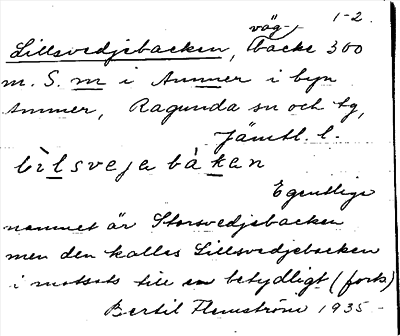 1-2.
Lillsvedjebacken, vägbacke 300
m. S. m i Ammer i byn
Ammer, Ragunda sn och tg,
Jämtl. l.
lìlsvejabàkan
Egentliga
namnet är Storsvedjebacken
men den kallas Lillsvedjebacken
i motsats till en betydligt (forts)
Bertil Flemström 1935 -